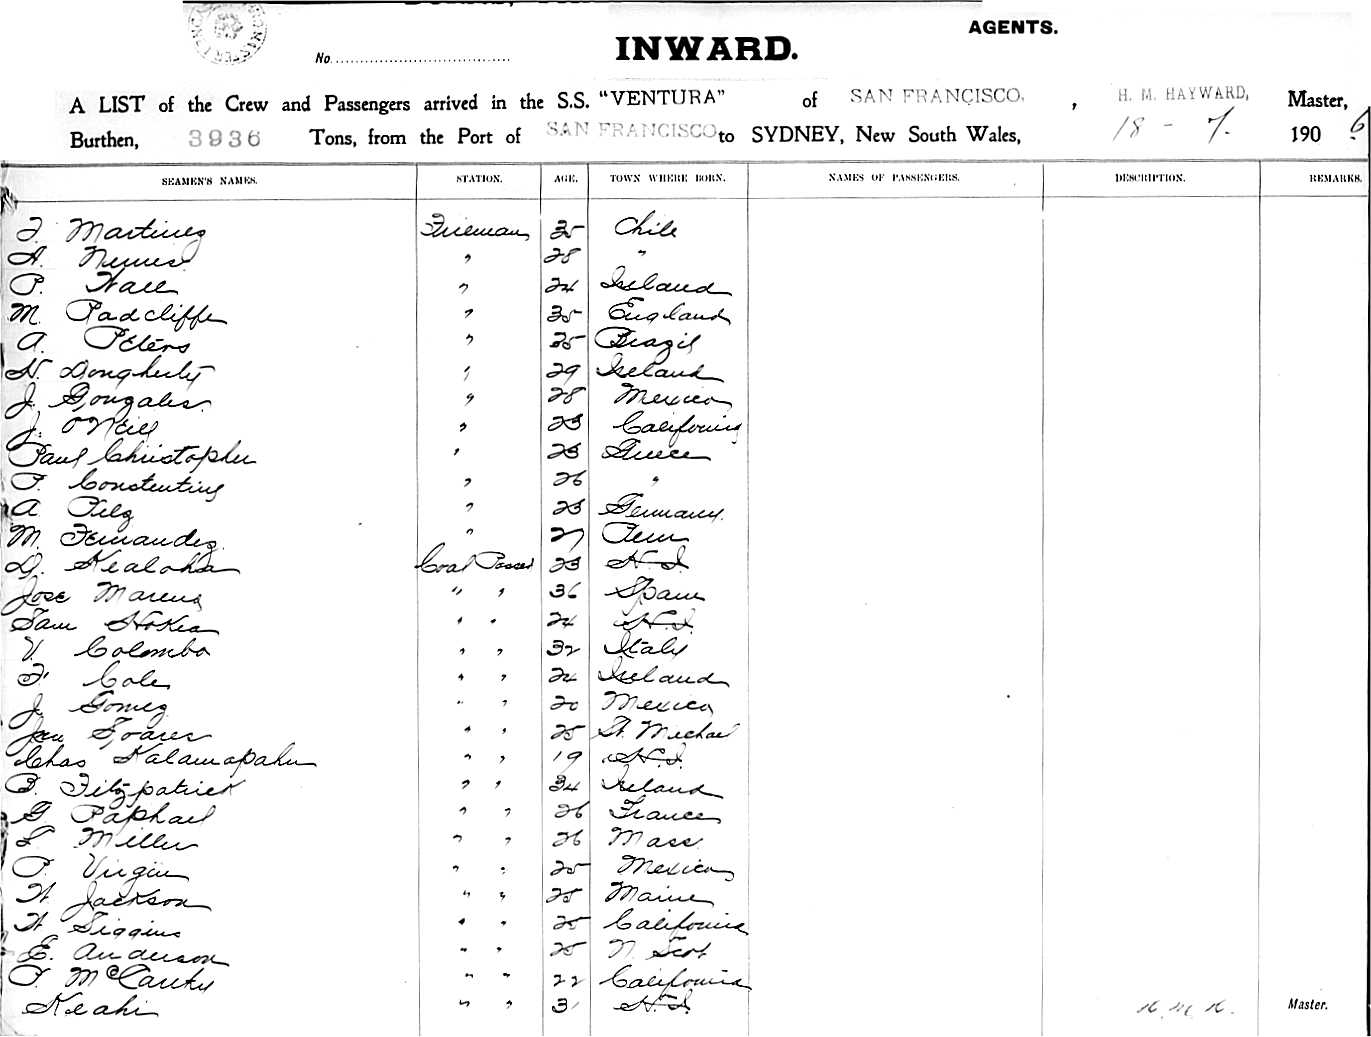 AGENTS.
INWARD.
No.
A LIST of the Crew and Passengers arrived in the S.S. "VENTURA" of SAN FRANCISCO, , H. M. HAYWARD, Master,
Burthen, 3936 Tons, from the Port of SAN FRANCISCO to SYDNEY, New South Wales, 18 - 7. 190 6
SEAMEN'S NAMES. STATION. AGE. TOWN WHERE BORN. NAMES OF PASSENGERS. DESCRIPTION. REMARKS.
F. Martinez Fireman 35 Chile
28 "
P. " 24 Ireland
M. Radcliffe " 35 England
A. Peters " 25 Brazil
H. Dougherty " 29 Ireland
J. Gonzales. " 28 Mexico
J. O'Neill " 23 California
Paul Christopher " 23 Greece
P. Constentine " 26 "
A Pilz " 23 Germany.
M. Fernandez " 27 Peru
D. Kealoha Coal Passer 23 H. I.
Jose " " 36 Spain
Sam Hokea " " 24 H. I.
V. Colombo " " 32 Italy
F. Cole " " 24 Ireland
J. Gomez " " 20 Mexico
Soares " " 25 St. Michael
Chas Kalamapahu " " 19 H. I.
B. Fitzpatrick " " 34 Ireland
G. Raphael " " 26 France
L Miller " " 26 Mass
P. Virgin " " 25 Mexico
H Jackson " " 28 Maine
H Siggins " " 25 California
E. Anderson " " 25 N. Scot
P. McCarthy " " 22 California
Keahi " " 31 H. I. Master.